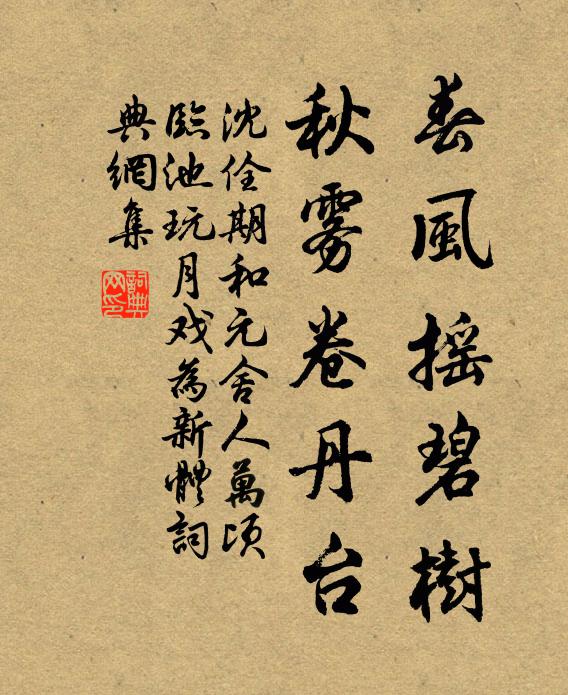 春風搖碧樹
秋雾卷丹台
沈佺期和元舍人萬顷
臨池玩月戏為新體詞
典網集
詞典网印